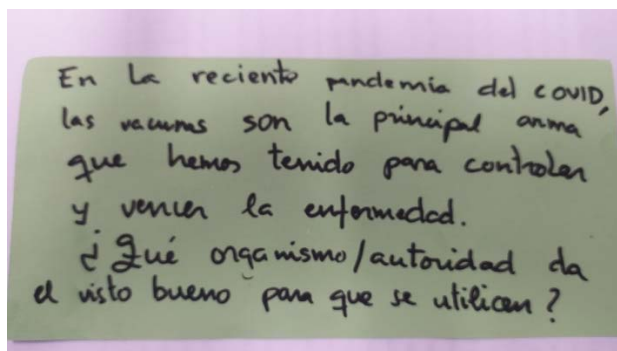 En la reciente pandemia del COVID,
las vacunas son la principal arma
que hemos tenido para controlar
y vencer la enfermedad.
¿Qué organismo/autoridad da
el visto bueno para que se utilicen?